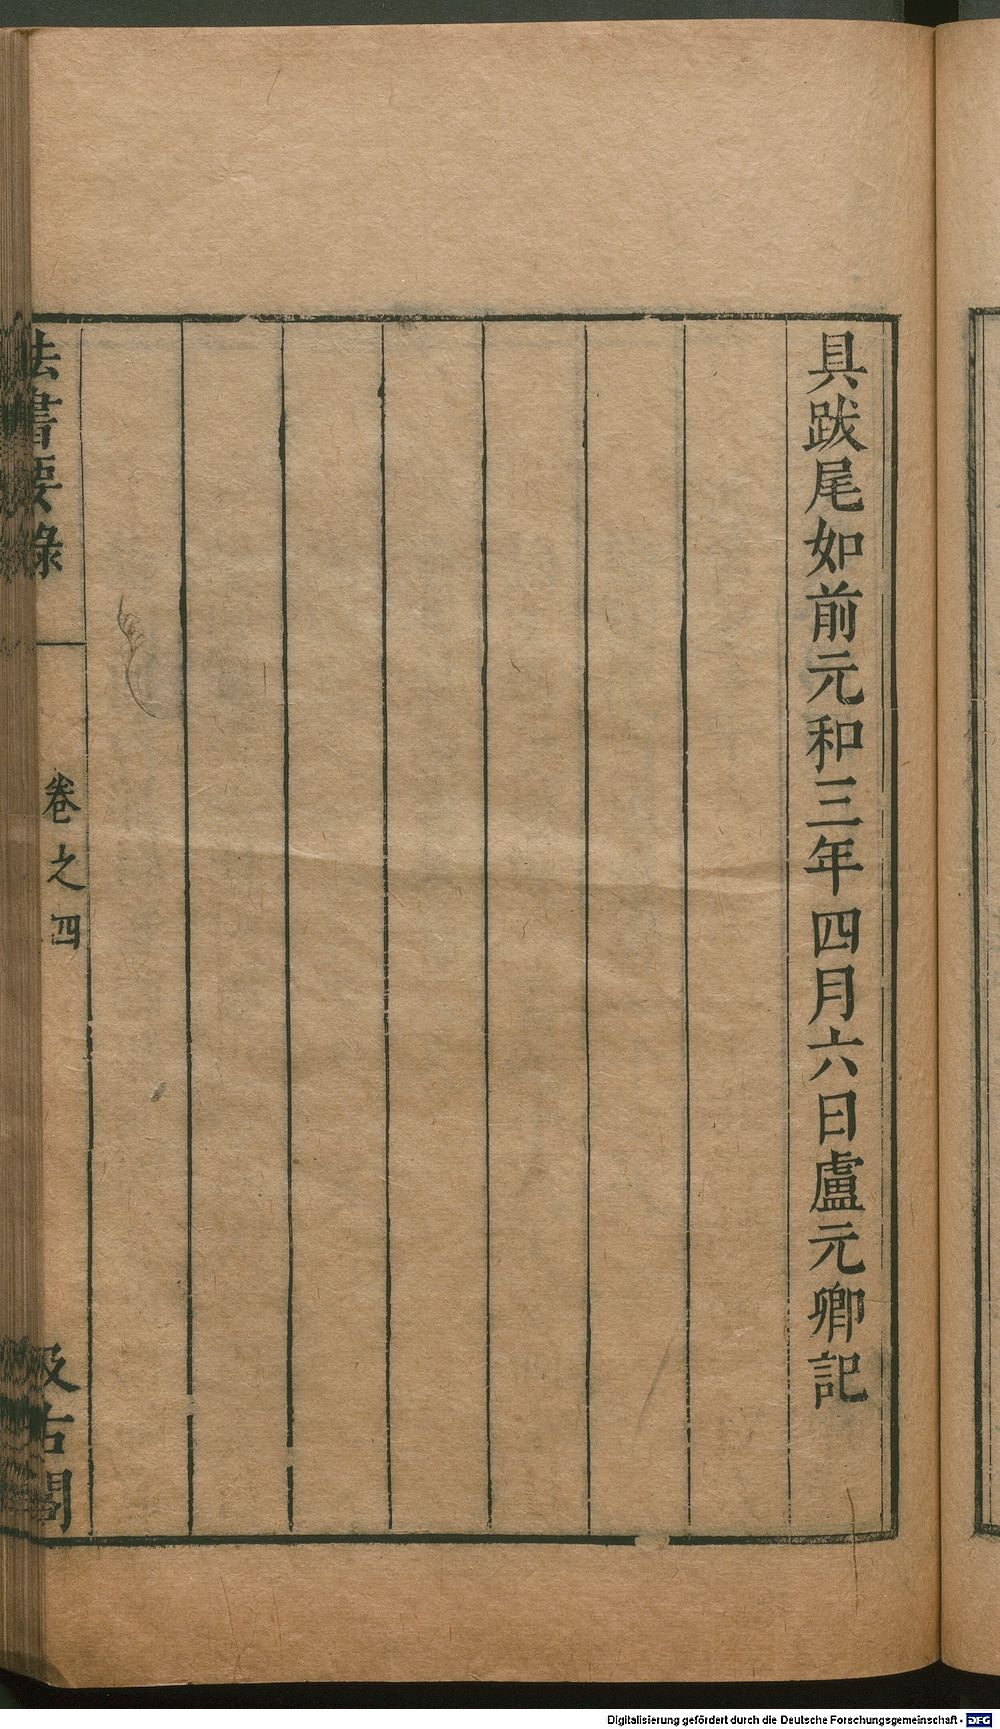 具跋尾如前元和三年四月六日盧元卿記
法書要錄
卷之四
汲古閣
Digitalisierung gefördert durch die Deutsche Forschungsgemeinschaft - DFG